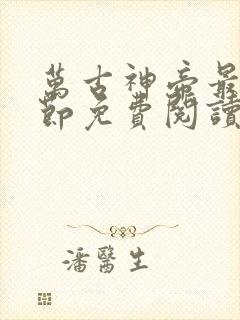 萬古神帝最
節免費閱讀
潘醫生